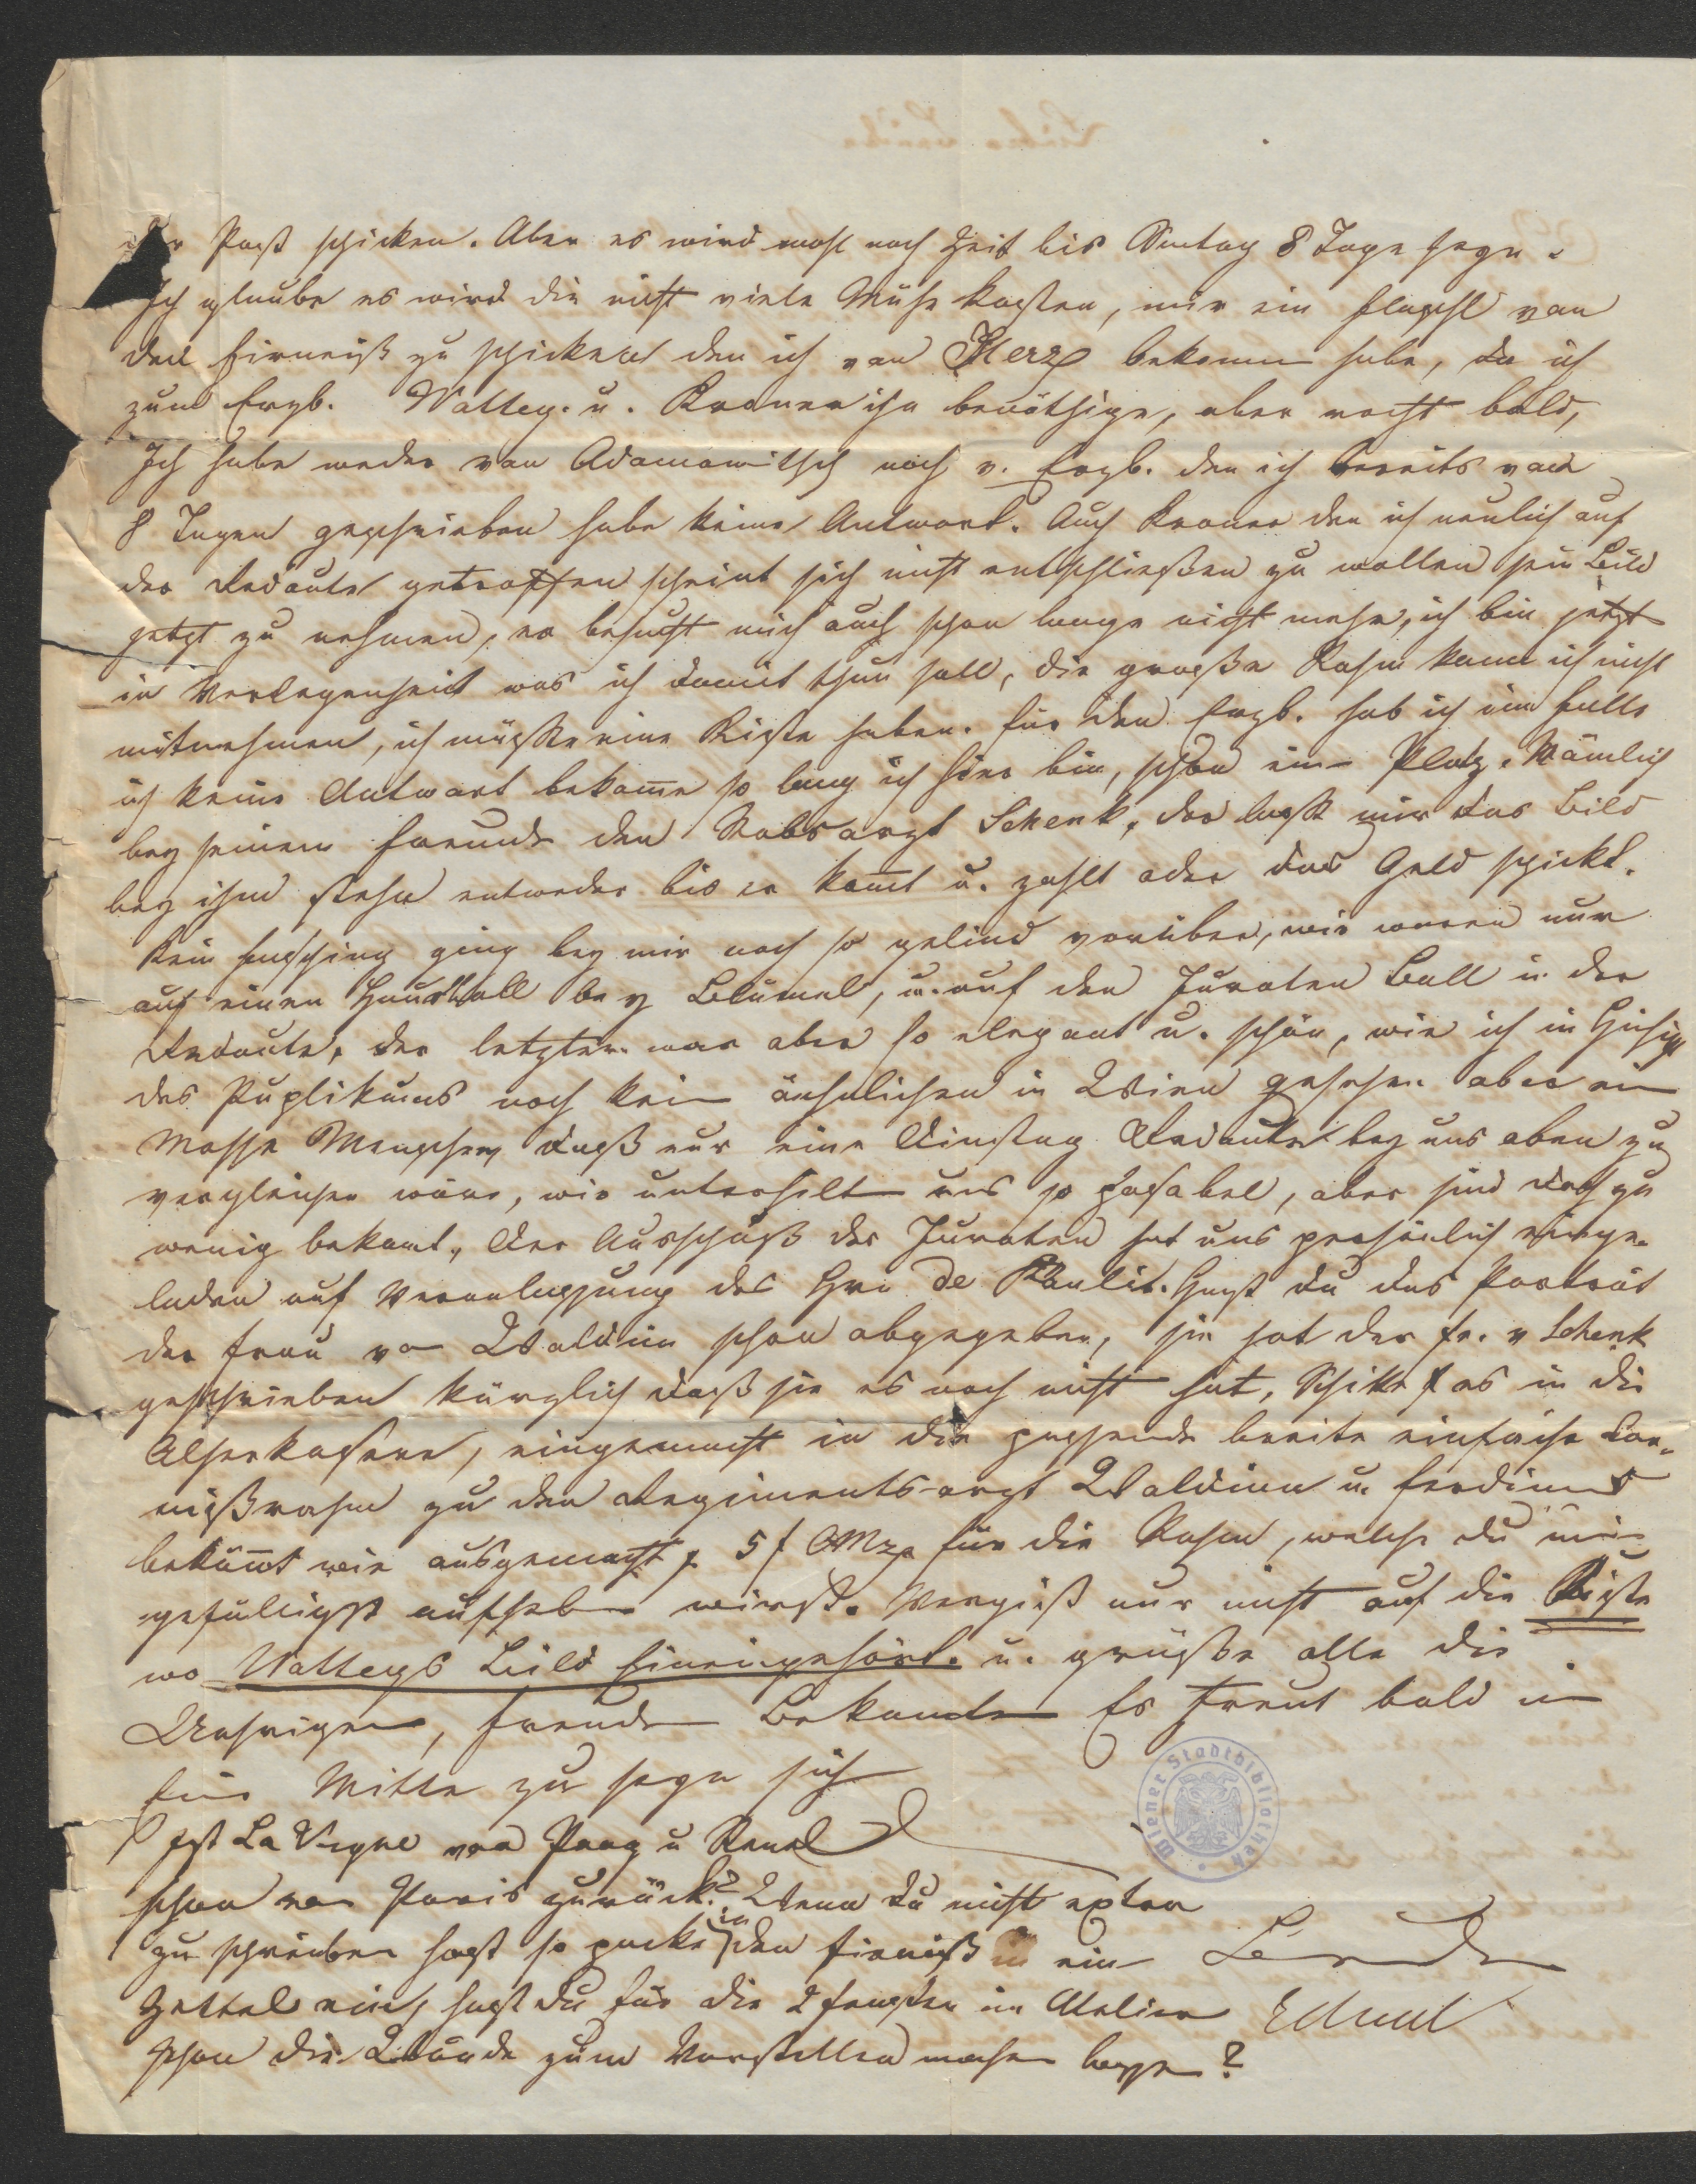 der Post schicken. Aber es wird wohl noch Zeit bis Sontag 8 Tage seyn.
Ich glaube es wird dir nicht viele Mühe kosten, mir ein Flaschl von
den Firneiß zu schicken den ich von Herz bekomen habe, da ich
zum Erzb. Vattey. u. Kraner ihn benöthige, aber recht bald,
Ich habe weder von Adamowitsch noch v. Erzb. den ich bereits vor
8 Tagen geschrieben habe keine Antwort. Auch Kraner den ich neulich auf
der Redoute getroffen scheint sich nicht entschließen zu wollen sein Bild
jetzt zu nehmen, er besucht mich auch schon lange nicht mehr, ich bin jetzt
in Verlegenheit was ich damit thun soll, die große Rahm kann ich nicht
mitnehmen, ich müßte eine Kiste haben. für den Erzb. hab ich im Falle
ich keine Antwort bekome so lang ich hier bin, schon ein Platz. Nämlich
bey seinem Freunde den Stabsarzt Schenk, der laßt mir das Bild
bey ihm stehn entweder bis er komt u. zahlt oder das Geld schickt.
Kein Fasching ging bey mir noch so gelind vorüber, wir waren nur
auf einen Hausball bey Blümel, u. auf den Juraten Ball in der
Redoute, der letztere war aber so elegant u. schön, wie ich in Hinsicht
des Puplikums noch kein ähnlichen in Wien gesehen aber ein
Masse Menschen daß nur eine Dinstag Redoute bey uns oben zu
vergleichen wäre, wir unterhilt uns so passabel, aber sind doch zu
wenig bekant, Der Ausschuß der Juraten hat uns persönlich einge-
laden auf Veranlassung des Hrn de Paulis. Hast du das Porträt
der Frau von Waldinn schon abgegeben, sie hat der Fr. v Schenk
geschrieben kürzlich daß sie es noch nicht hat, Schike es in die
Alserkaserne, eingemacht in die passende breite einfache Kar-
nißrahm zu den Regiments-arzt Waldinn u. Ferdinand
bekömt wie ausgemacht 5 f CMz für die Rahm, welche du mir
gefälligst aufheben wirst. Vergiß nur nicht auf die Kiste
wo Vatteys Bild hineingehört. u. grüße alle die
Unsrigen, Freunde Bekante Es freut bald in
Eure Mitte zu seyn sich
Ist La Vigne von Prag u Ranel
schon von Paris zurück? Wenn du nicht extra
zu schreiben hast so packe in den Firneiß ein
Zettel ein, hast du für die 2 Fenster im Atelier
schon die Wände zum Vorstellen machen lassen?
Wiener Stadtbibliothek